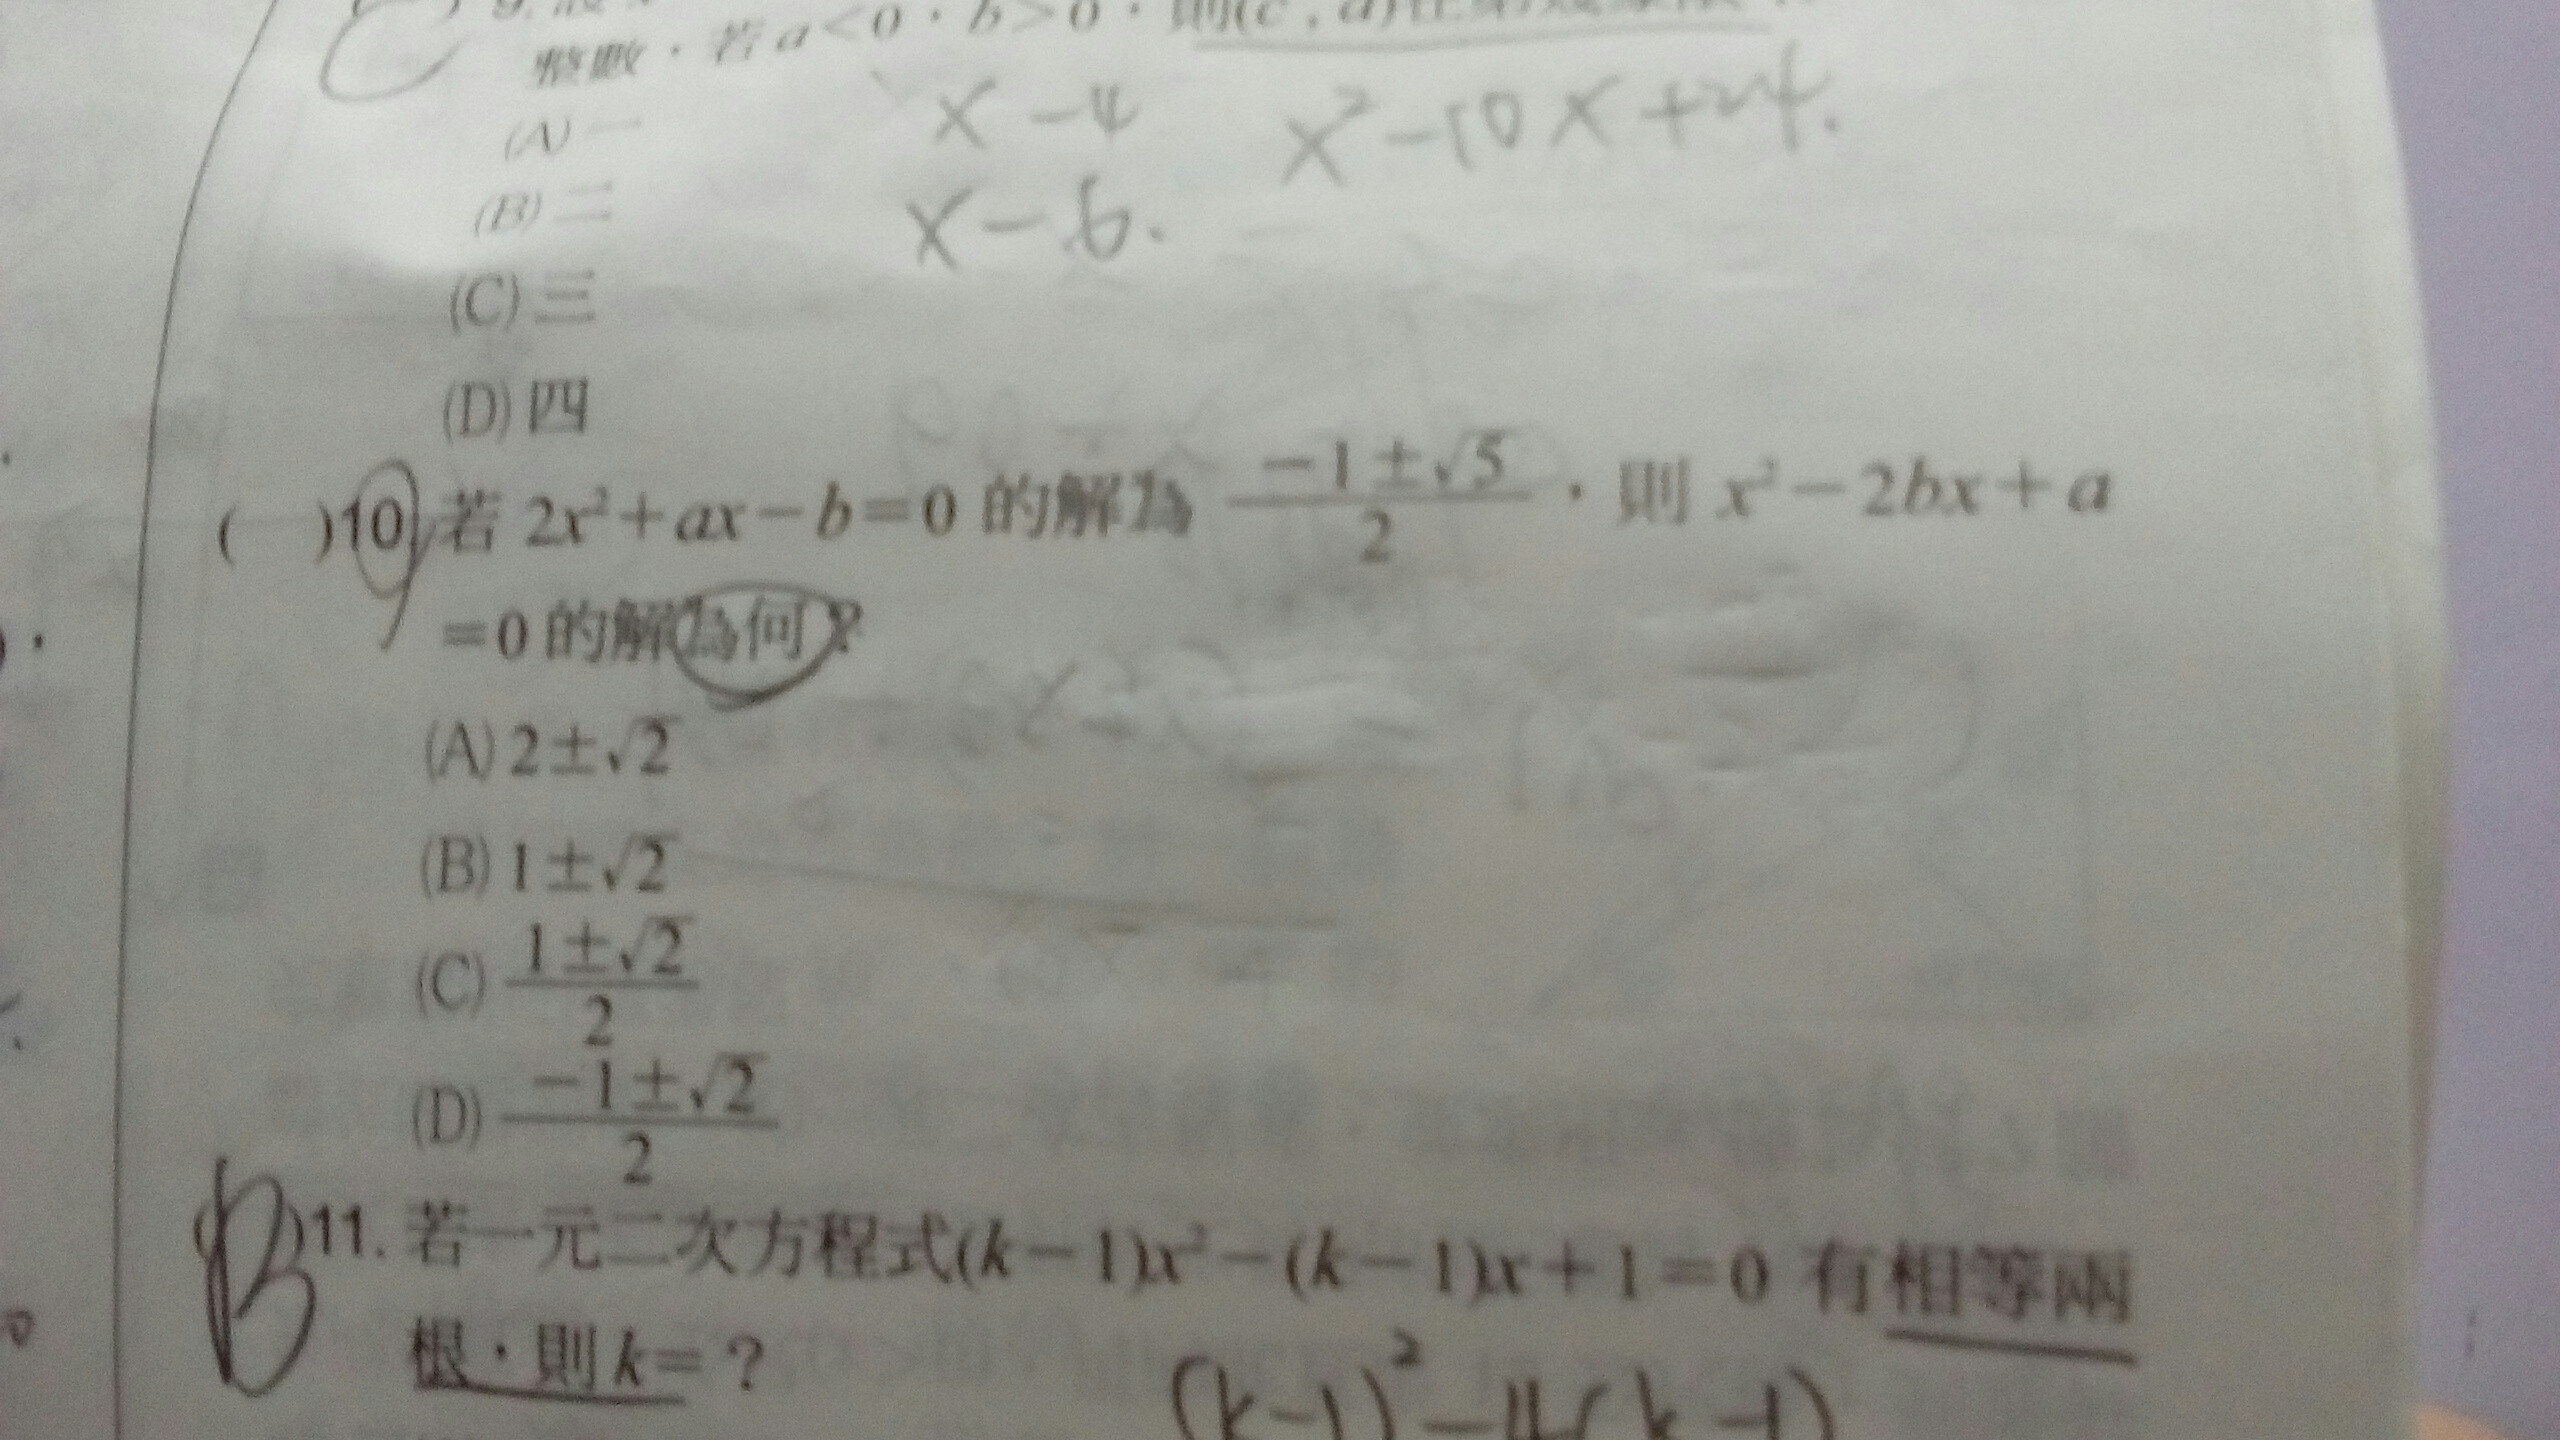 整數，若 a<0，b>0，則(c，a)在
(A) 一
(B) 二
(C) 三
(D) 四
x-4
x-6.
x²-10x+24.
( )10. 若 2x²+ax-b=0 的解為 (-1±√5)/2，則 x²-2bx+a
=0 的解為何？
(A) 2±√2
(B) 1±√2
(C) (1±√2)/2
(D) (-1±√2)/2
(B)11. 若一元二次方程式(k-1)x²-(k-1)x+1=0 有相等兩
根，則 k=？
(k-1)²-4(k-1)